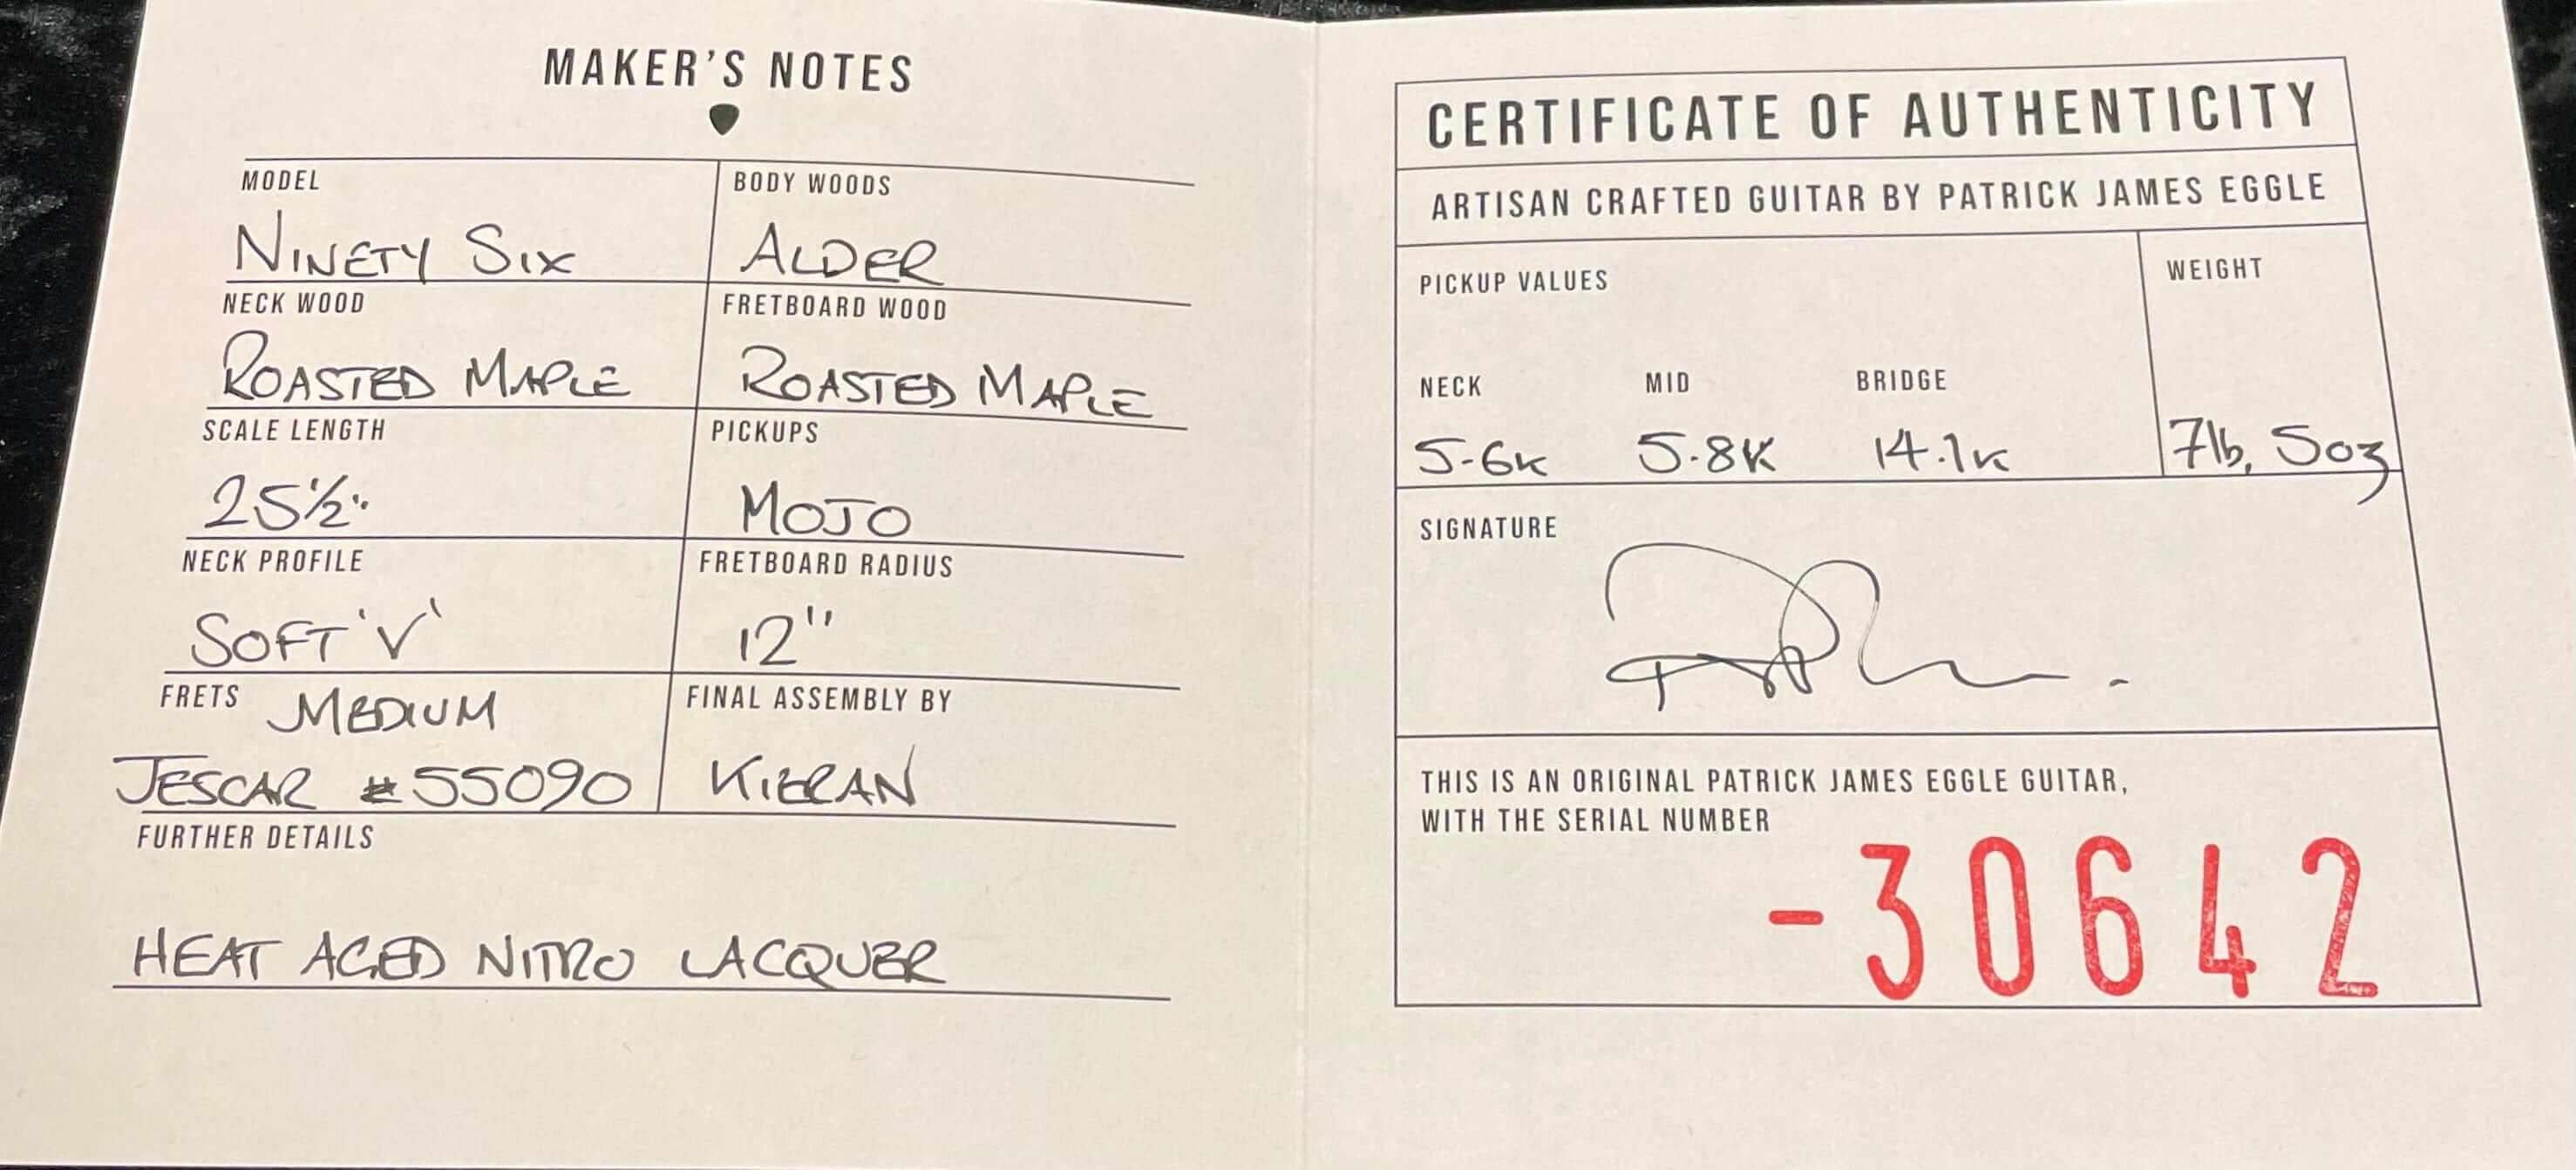 MAKER'S NOTES
MODEL
NINETY SIX
BODY WOODS
ALDER
NECK WOOD
ROASTED MAPLE
FRETBOARD WOOD
ROASTED MAPLE
SCALE LENGTH
25½"
PICKUPS
MOJO
NECK PROFILE
SOFT 'V'
FRETBOARD RADIUS
12"
FRETS MEDIUM
JESCAR #55090
FINAL ASSEMBLY BY
KIERAN
FURTHER DETAILS
HEAT AGED NITRO LACQUER
CERTIFICATE OF AUTHENTICITY
ARTISAN CRAFTED GUITAR BY PATRICK JAMES EGGLE
PICKUP VALUES
WEIGHT
NECK MID BRIDGE
5.6K 5.8K 14.1K
7lb, 5oz
SIGNATURE
THIS IS AN ORIGINAL PATRICK JAMES EGGLE GUITAR,
WITH THE SERIAL NUMBER
-30642